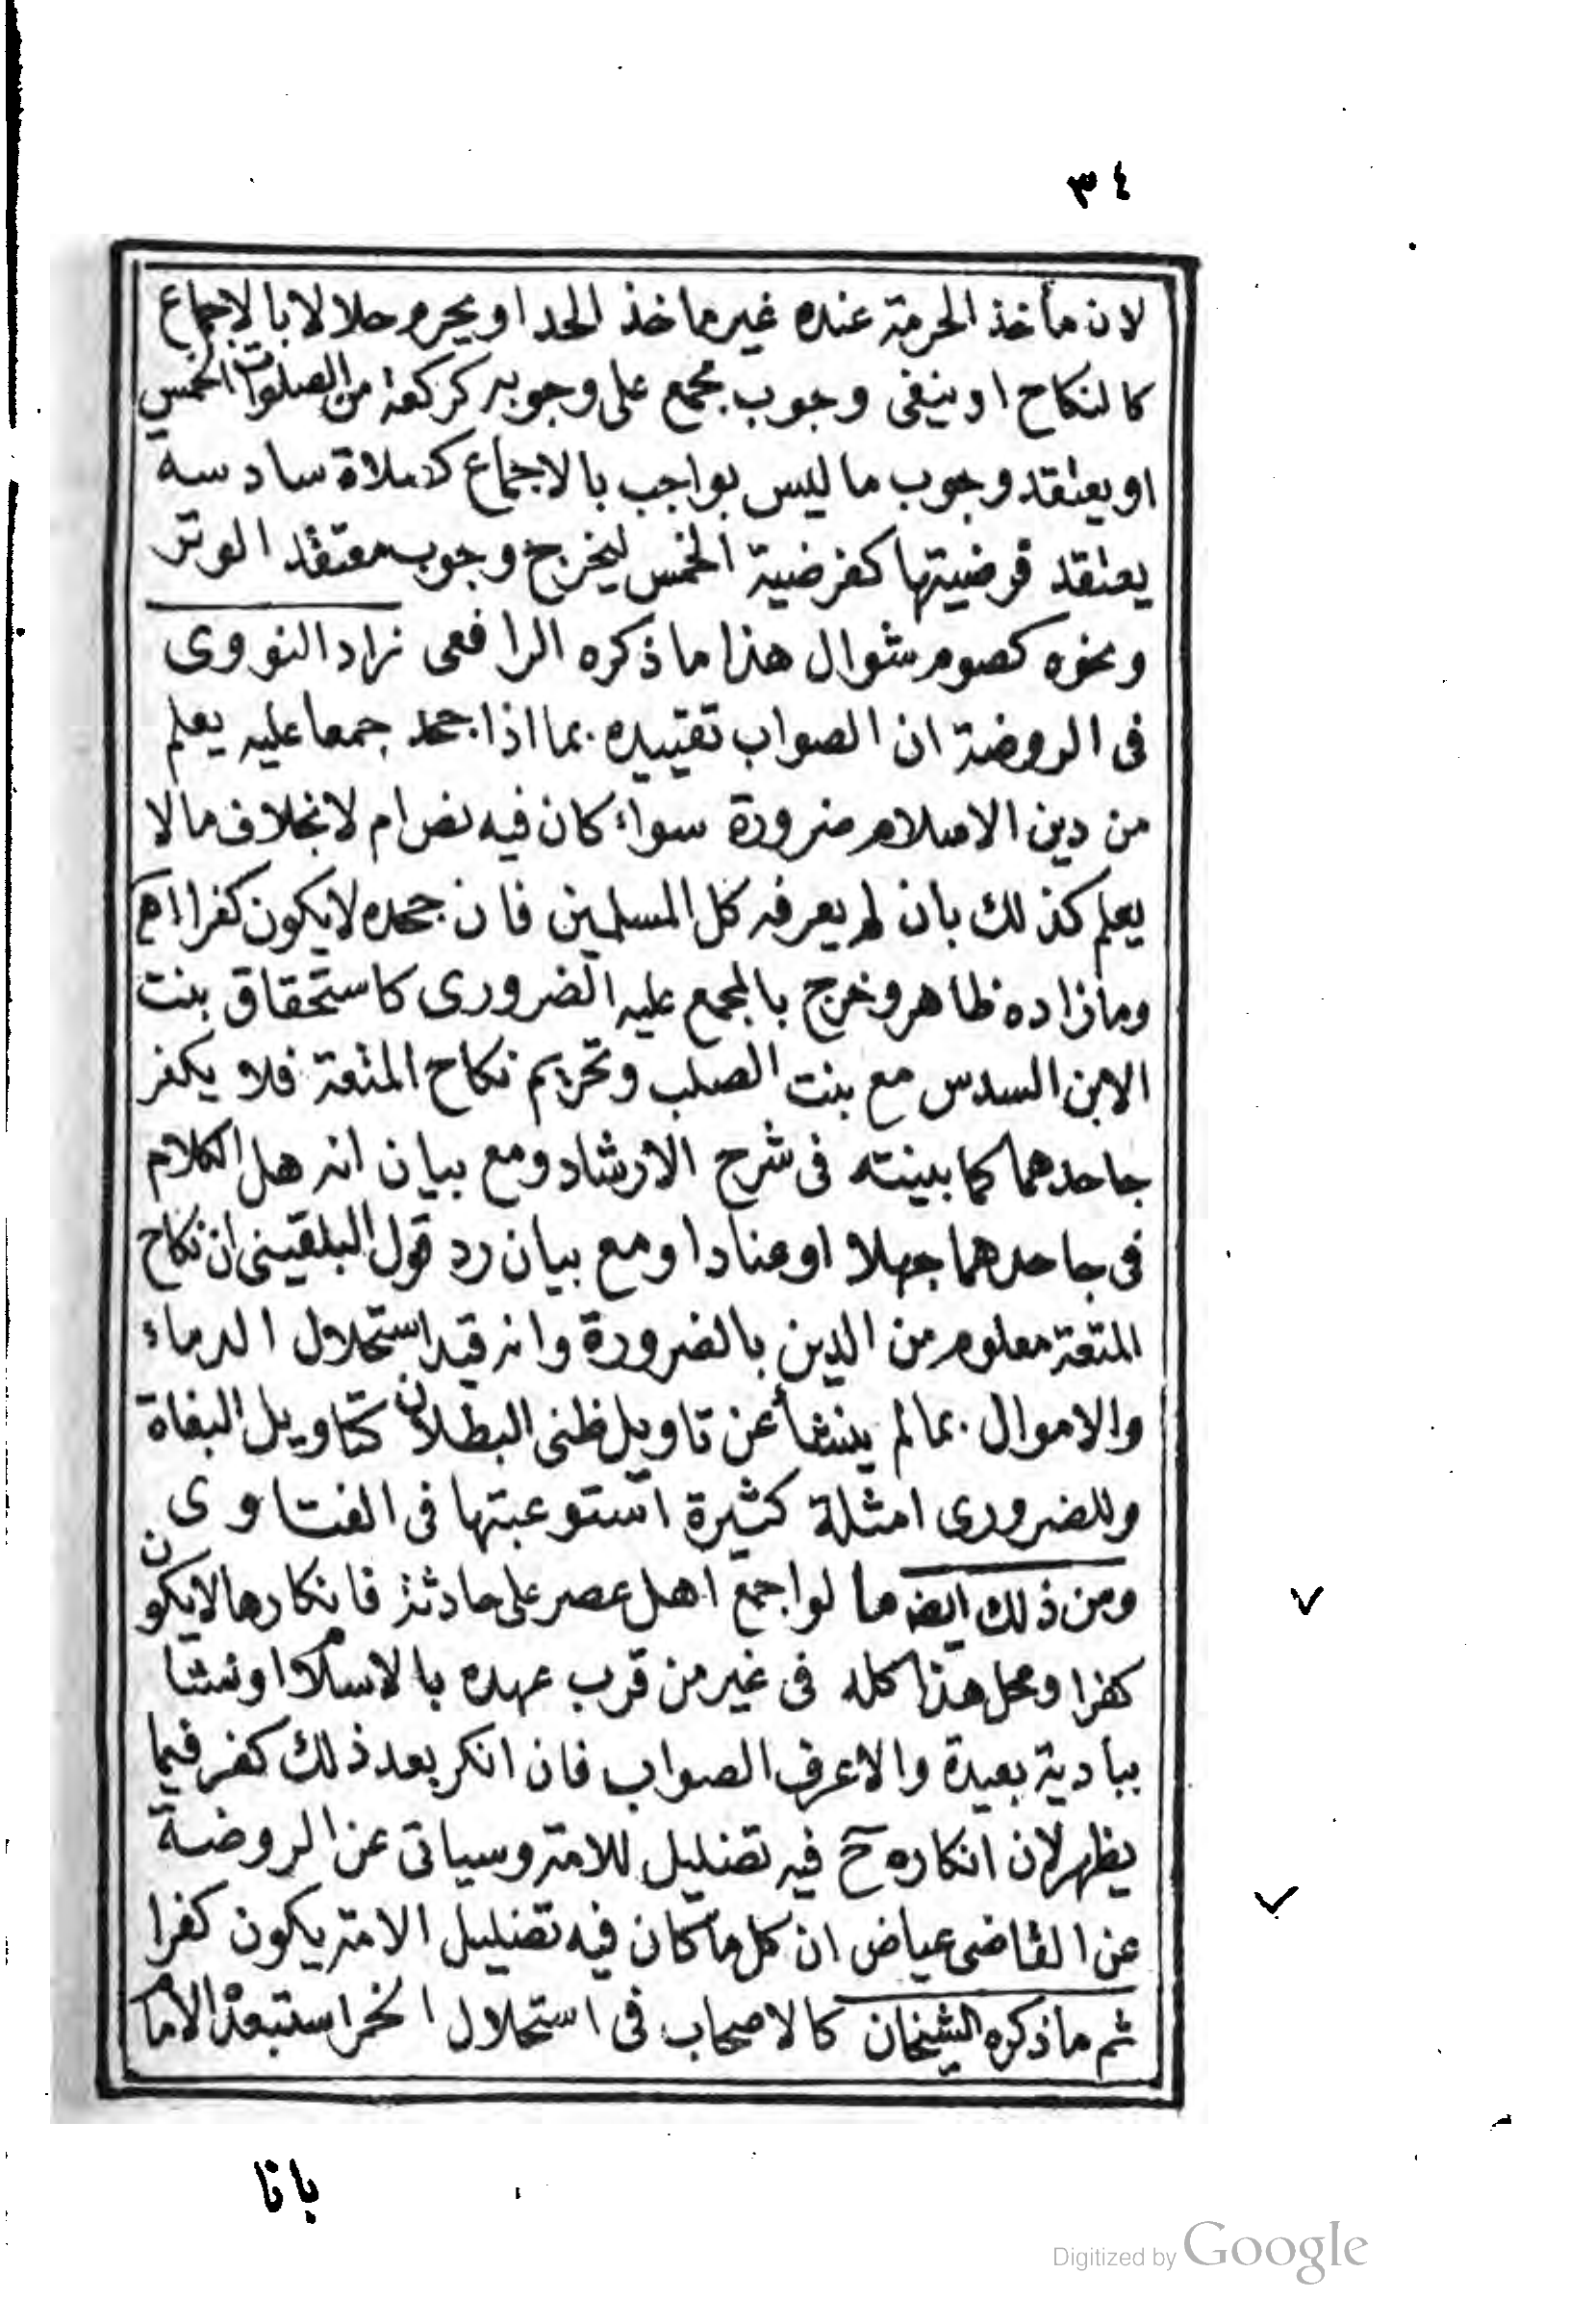 ٣٤
لان مأخذ الحرمة عنده غير ماخذ الحد او يحرم حلالا بالاجماع
كالنكاح او ينفى وجوب مجمع على وجوبه كركعة من الصلوات الخمس
او يعتقد وجوب ما ليس بواجب بالاجماع كصلاة سادسة
يعتقد فرضيتها كفرضية الخمس ليخرج وجوب معتقد الوتر
ونحوه كصوم شوال هذا ما ذكره الرافعى زاد النووى
فى الروضة ان الصواب تقييده بما اذا جحد جمعا عليه يعلم
من دين الاسلام ضرورة سواء كان فيه نص ام لا بخلاف مالا
يعلم كذلك بان لم يعرفه كل المسلمين فان جحده لا يكون كفرا اه
وما زاده ظاهر وخرج بالمجمع عليه الضرورى كاستحقاق بنت
الابن السدس مع بنت الصلب وتحريم نكاح المتعة فلا يكفر
جاحدهما كما بينته فى شرح الارشاد ومع بيان انه هل الكلام
فى جاحدهما جهلا او عنادا ومع بيان رد قول البلقينى ان نكاح
المتعة معلوم من الدين بالضرورة وانه قيد استحلال الدماء
والاموال بمالم ينشأ عن تاويل ظنى البطلان كتاويل البغاة
وللضرورى امثلة كثيرة استوعبتها فى الفتاوى
ومن ذلك ايضه ما لو اجمع اهل عصر على حادثة فانكارها لا يكون
كفرا ومحل هذا كله فى غير من قرب عهده بالاسلام او نشأ
ببادية بعيدة والا عرف الصواب فان انكر بعد ذلك كفر فيما
يظهر لان انكاره ح فيه تضليل للامة وسياتى عن الروضة
عن القاضى عياض ان كل ما كان فيه تضليل الامة يكون كفرا
ثم ما ذكره الشيخان كالاصحاب فى استحلال الخمر استبعده الامام
بانا
Digitized by Google